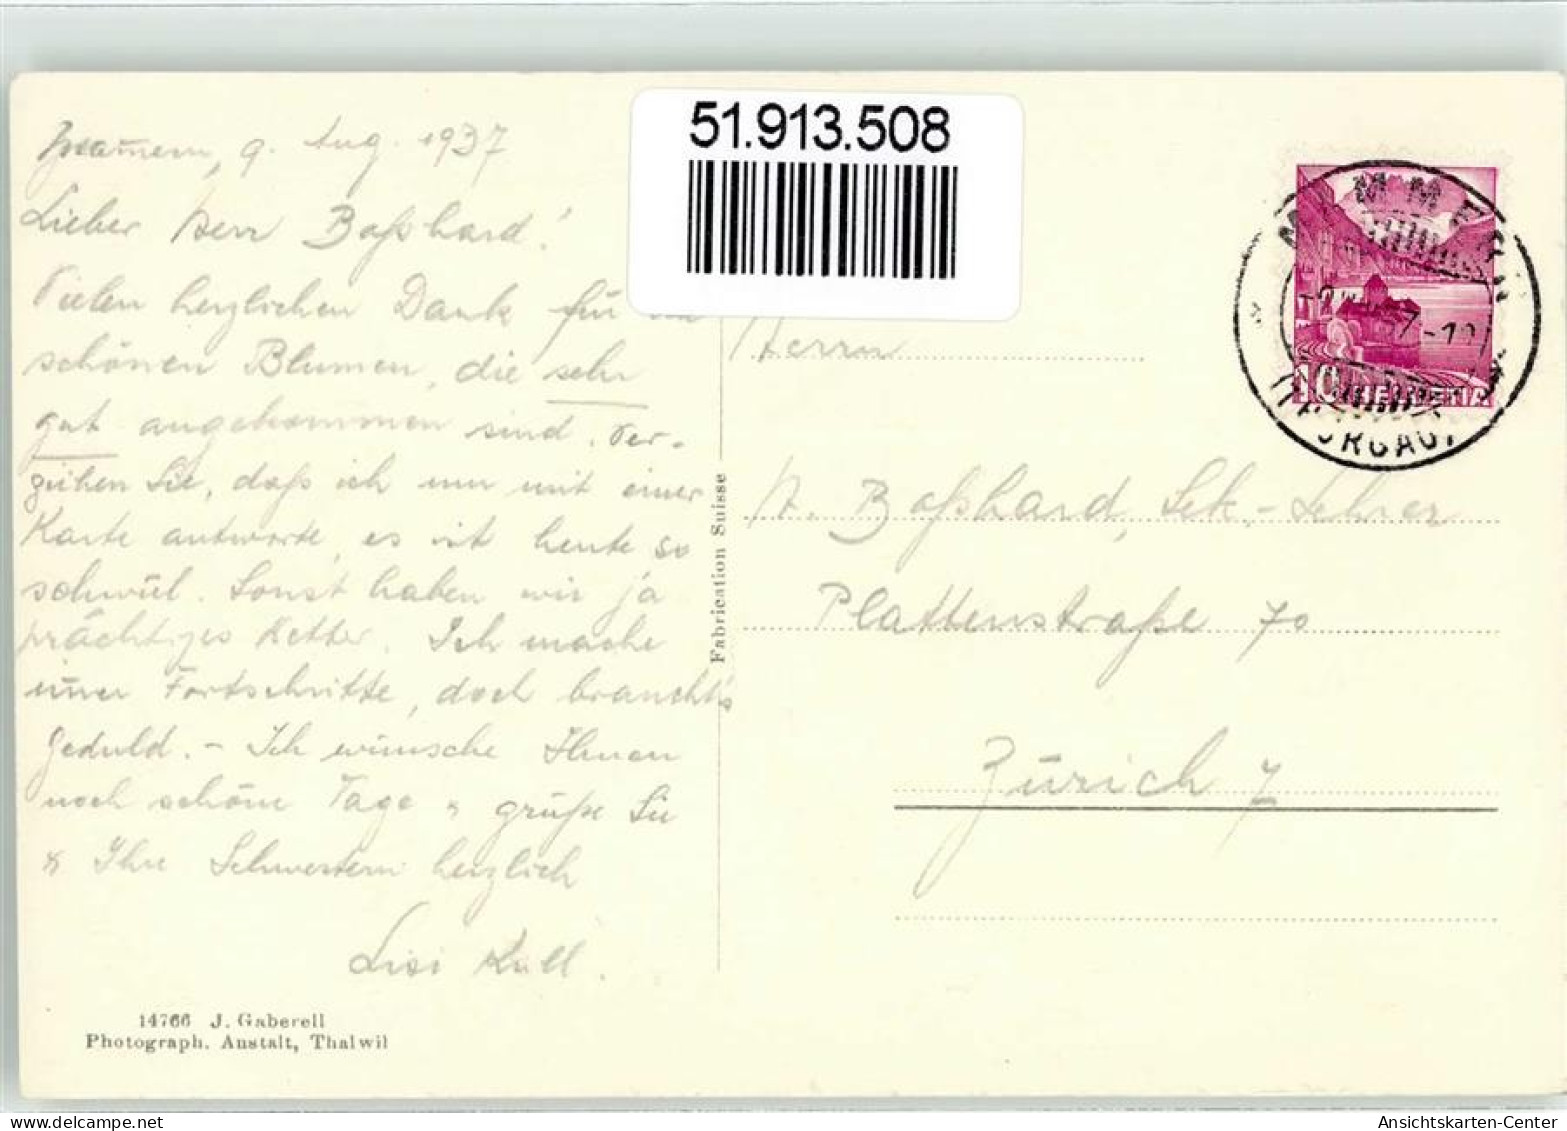 51.913.508
9. Aug. 1937
Lieber Herr Boßhard!
Vielen herzlichen Dank für
schönen Blumen, die sehr
gut angekommen sind. Ver-
zeihen Sie, daß ich nur mit einer
Karte antworte, es ist heute so
schwül. Sonst haben wir ja
prächtiges Wetter. Ich mache
immer Fortschritte, doch braucht's
Geduld. - Ich wünsche Ihnen
noch schöne Tage u. grüße Sie
u. Ihre Schwestern herzlich
Lisi Kull.
14766 J. Gaberell
Photograph. Anstalt, Thalwil
Fabrication Suisse
Herrn
H. Boßhard, Sek.-Lehrer
Plattenstraße 70
Zürich 7
MAMMERN
(THURGAU)
10 HELVETIA
Ansichtskarten-Center